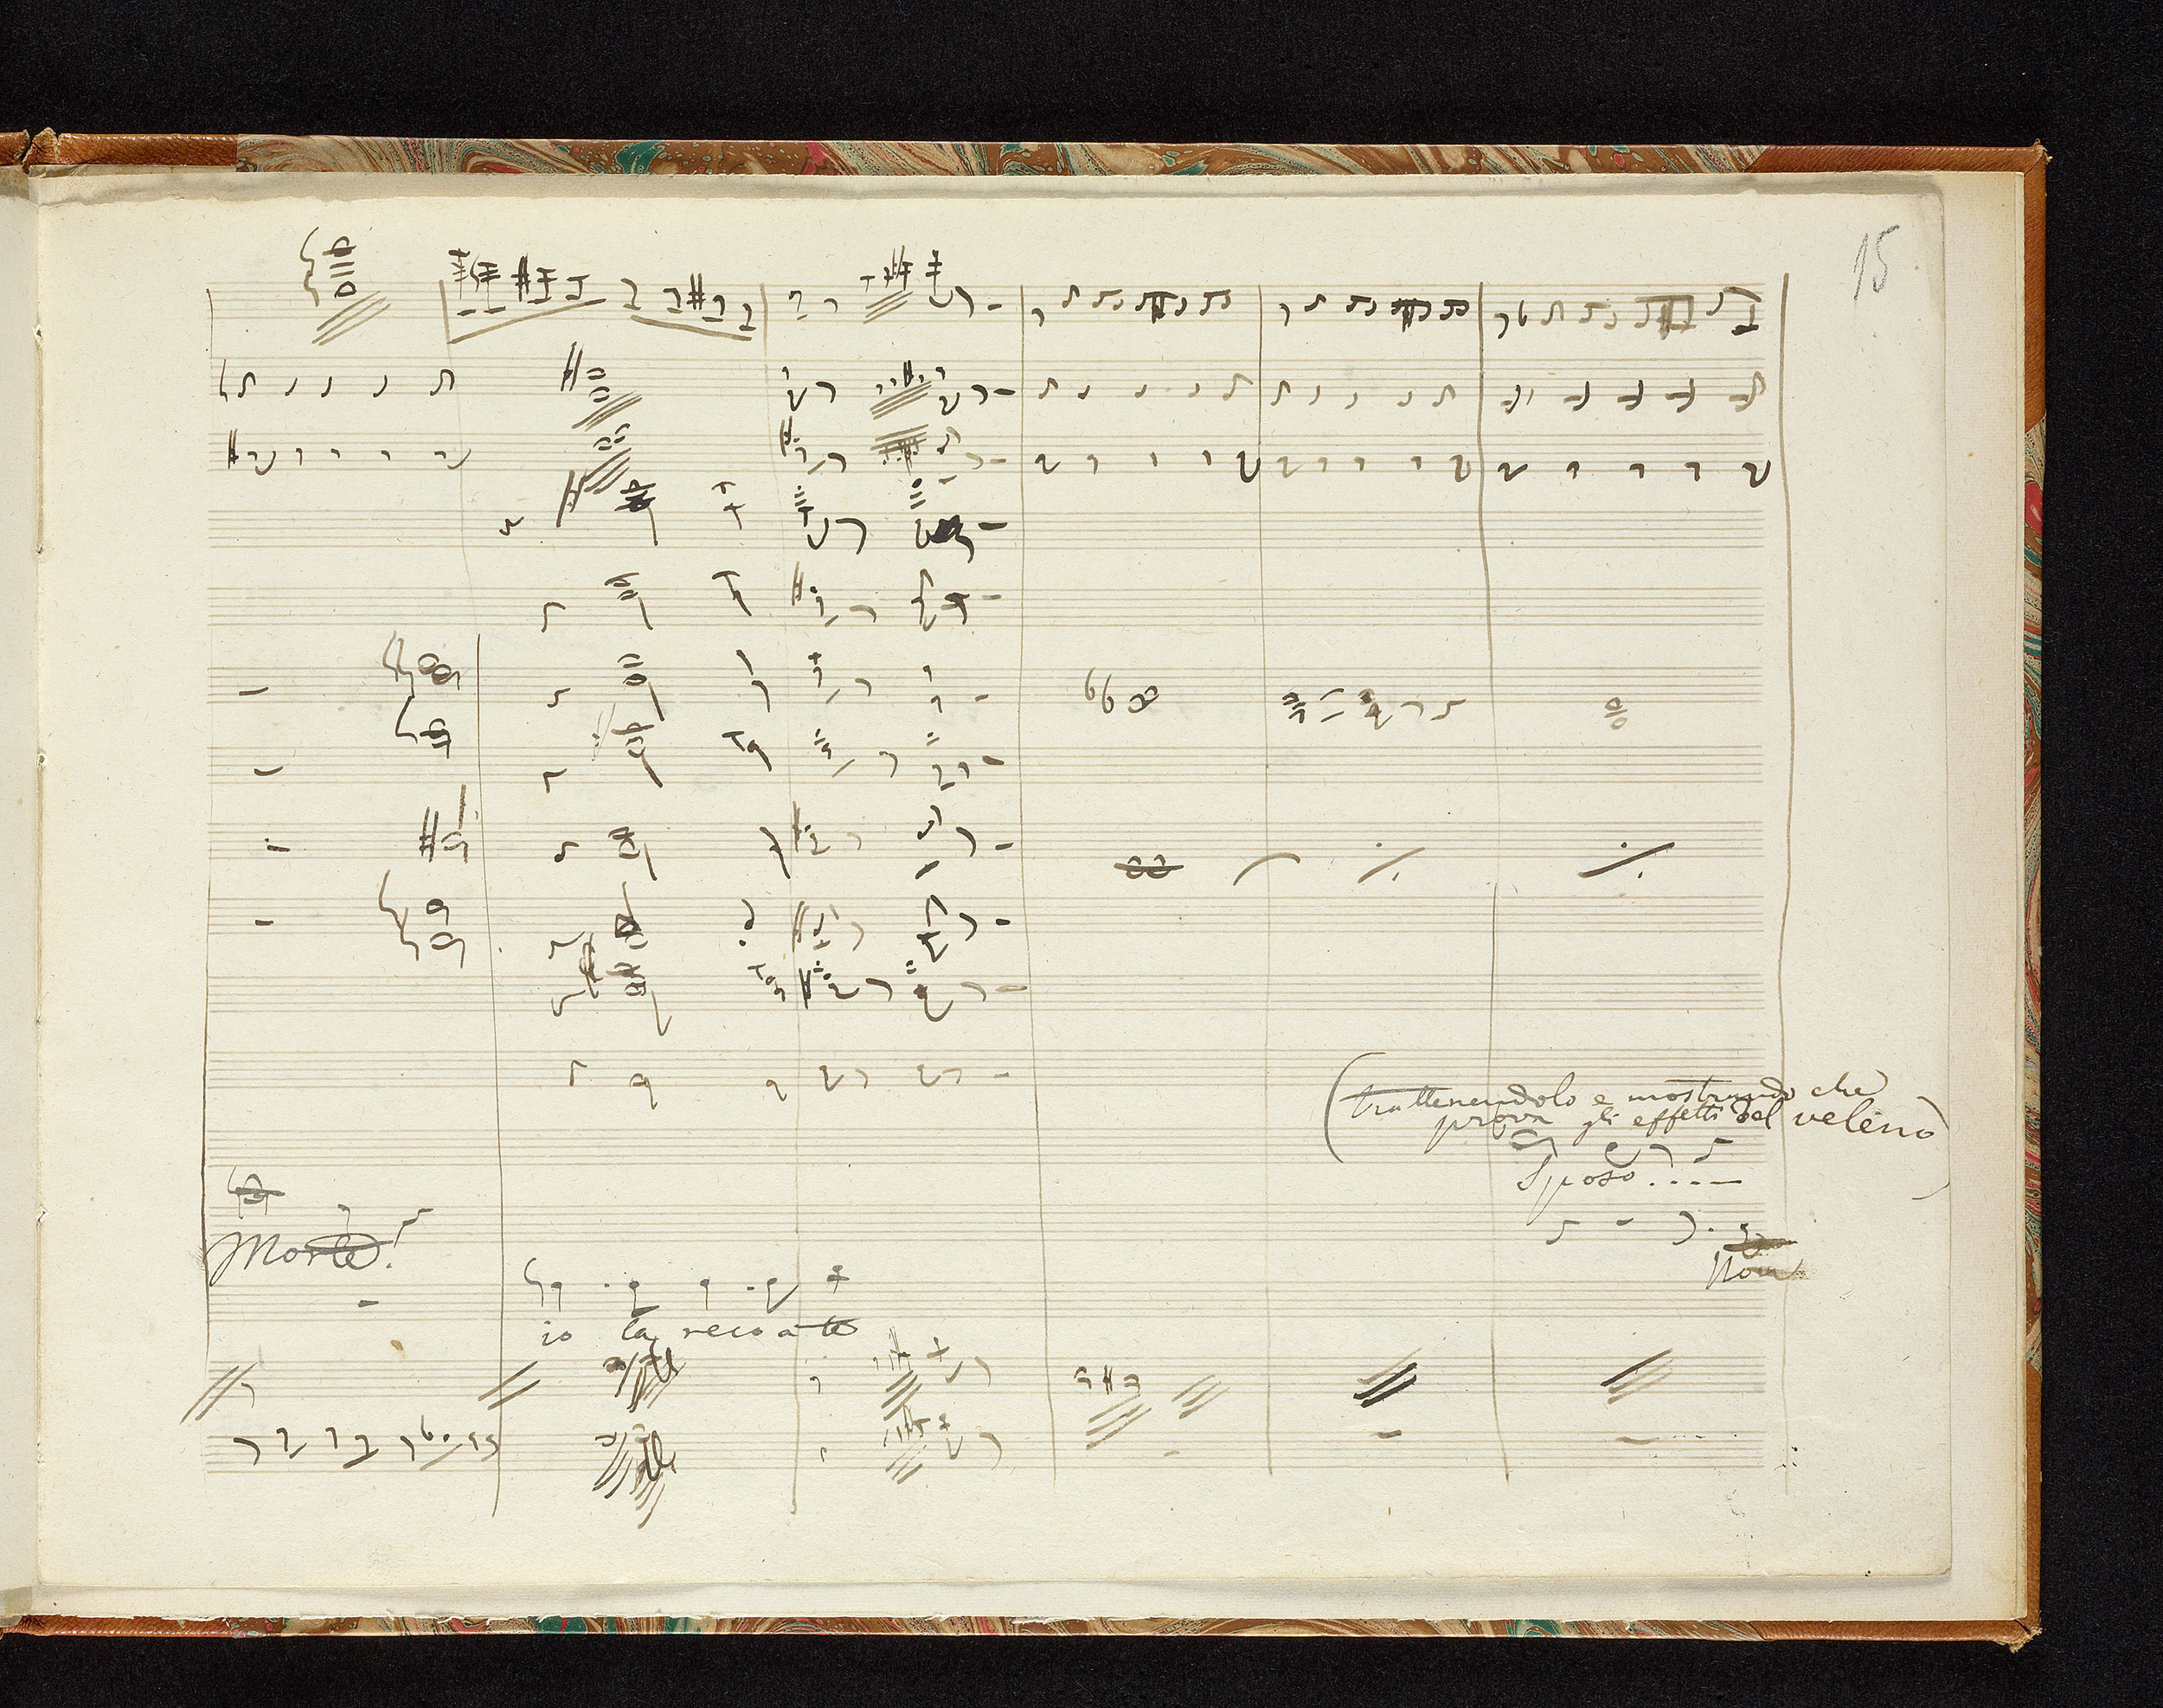 15
(trattenendolo e mostrando che
prova gli effetti del veleno)
Sposo.....
Morte!
Non
io la recoate